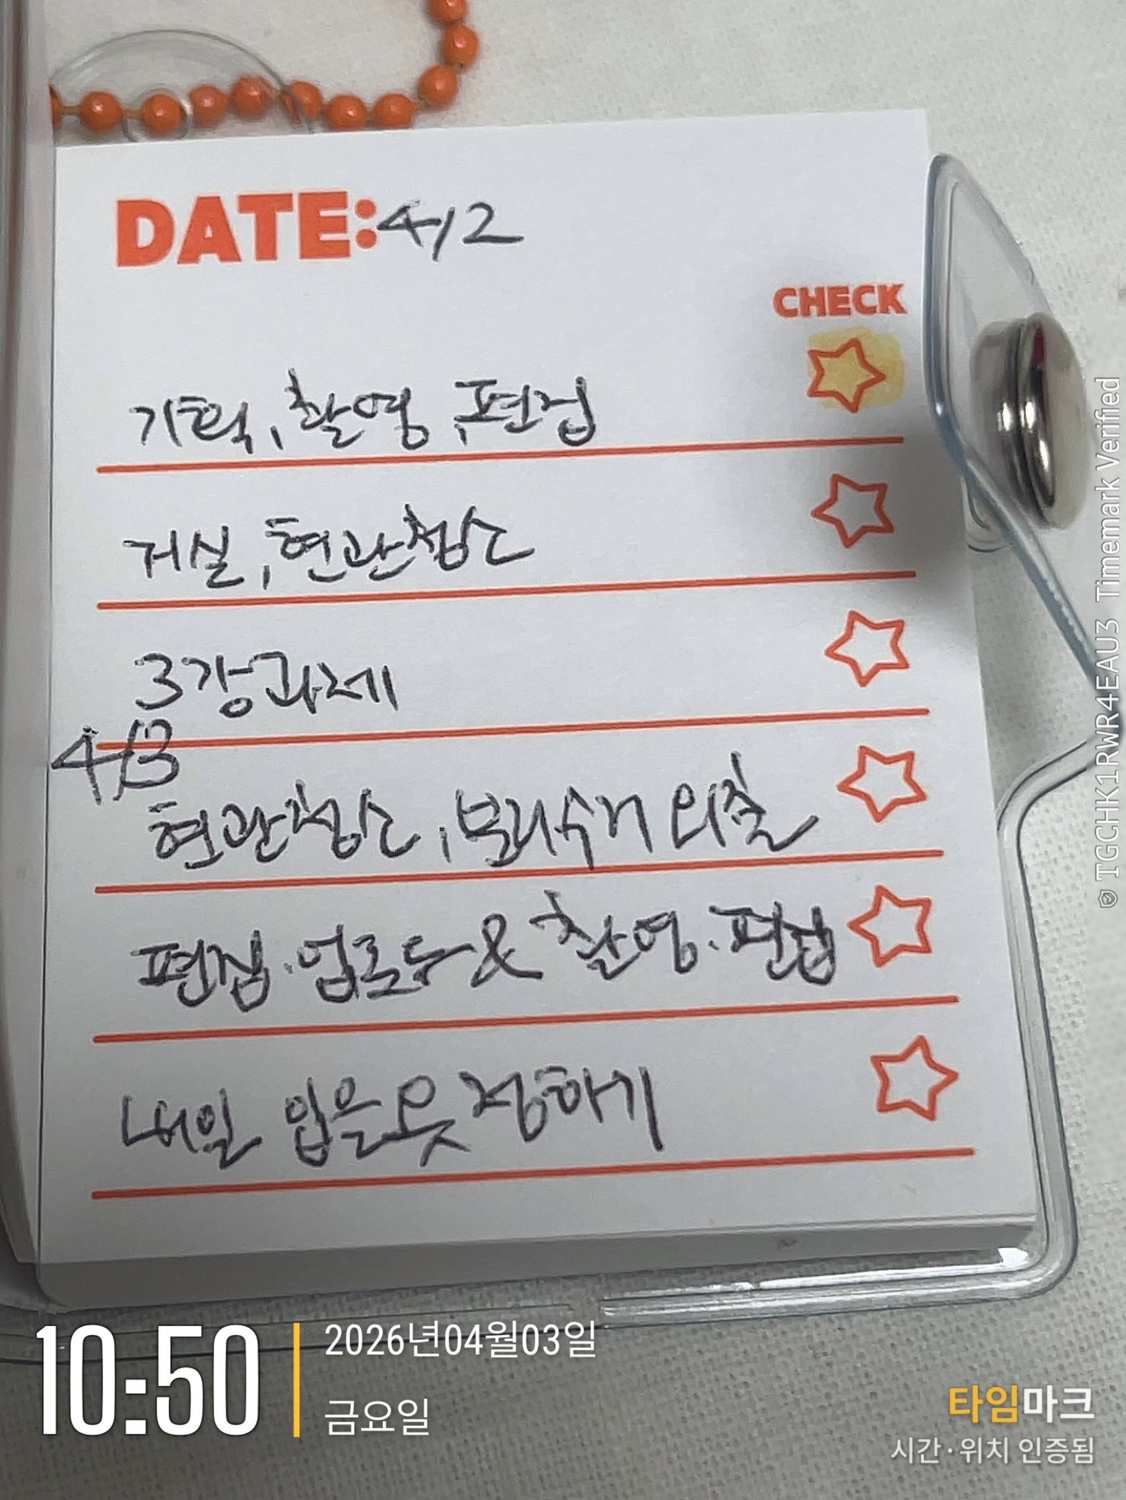 DATE: 4/2
CHECK
기획, 촬영, 편집
거실, 현관청소
3강과제
4/3
현관청소, 분리수거 외출
편집·업로두 & 촬영·편집
내일 입을옷 정하기
10:50
2026년04월03일
금요일
타임마크
시간·위치 인증됨
© TGCHK1RWR4EAU3 Timemark Verified